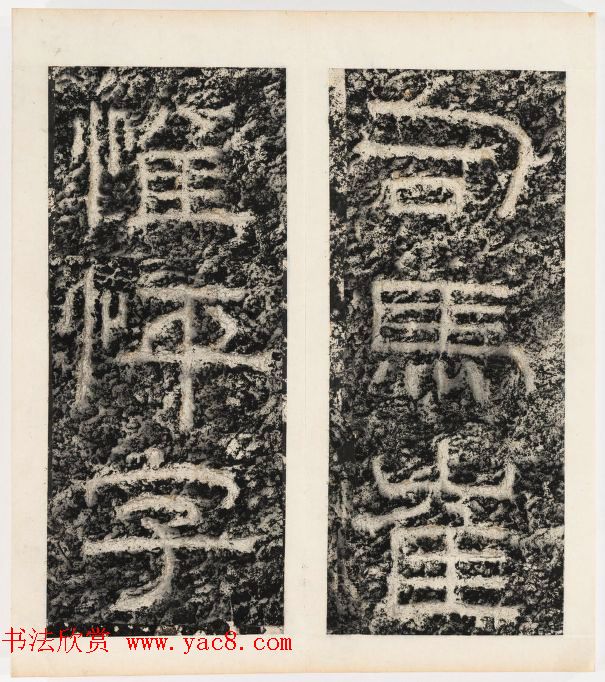 司馬崔
惟怦字
书法欣赏 www.yac8.com